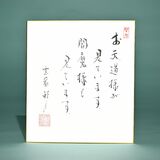 お天道様が
見ています
閻魔様も
見ています